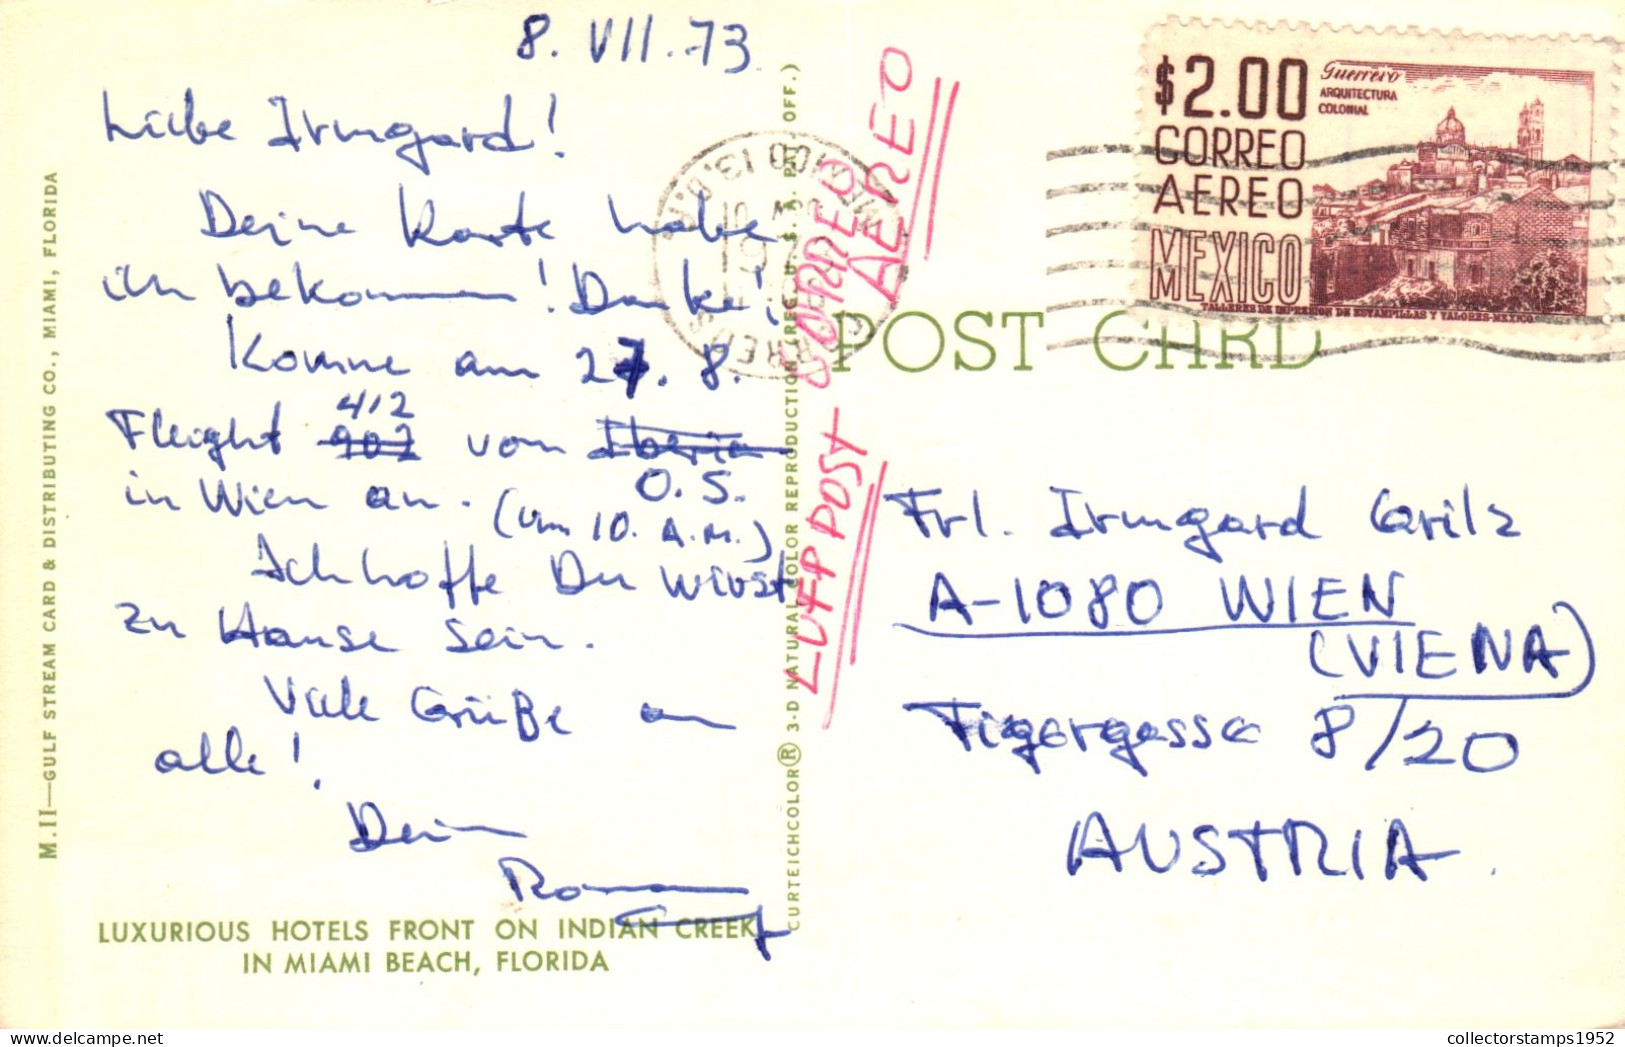 8. VII. 73
Liebe Irmgard!
Deine Karte habe
ich bekommen! Danke!
Komme am 27. 8.
412
Fleight 902 von Iberia
O.S.
in Wien an. (um 10. A.M.)
Ich hoffe Du wirst
zu Hause sein.
Viele Grüße an
alle!
Dein
Roman
LUXURIOUS HOTELS FRONT ON INDIAN CREEK
IN MIAMI BEACH, FLORIDA
M.II—GULF STREAM CARD & DISTRIBUTING CO., MIAMI, FLORIDA
CURTEICHCOLOR® 3-D NATURAL COLOR REPRODUCTION (REG. U.S.A. PAT. OFF.)
LUFPPOST CORREO
AEREO
POST CARD
$2.00
CORREO
AEREO
MEXICO
Guerrero
ARQUITECTURA
COLONIAL
TALLERES DE IMPRESION DE ESTAMPILLAS Y VALORES-MEXICO
Frl. Irmgard Grilz
A-1080 WIEN
(VIENA)
Tigergasse 8/20
AUSTRIA.
collectorstamps1952